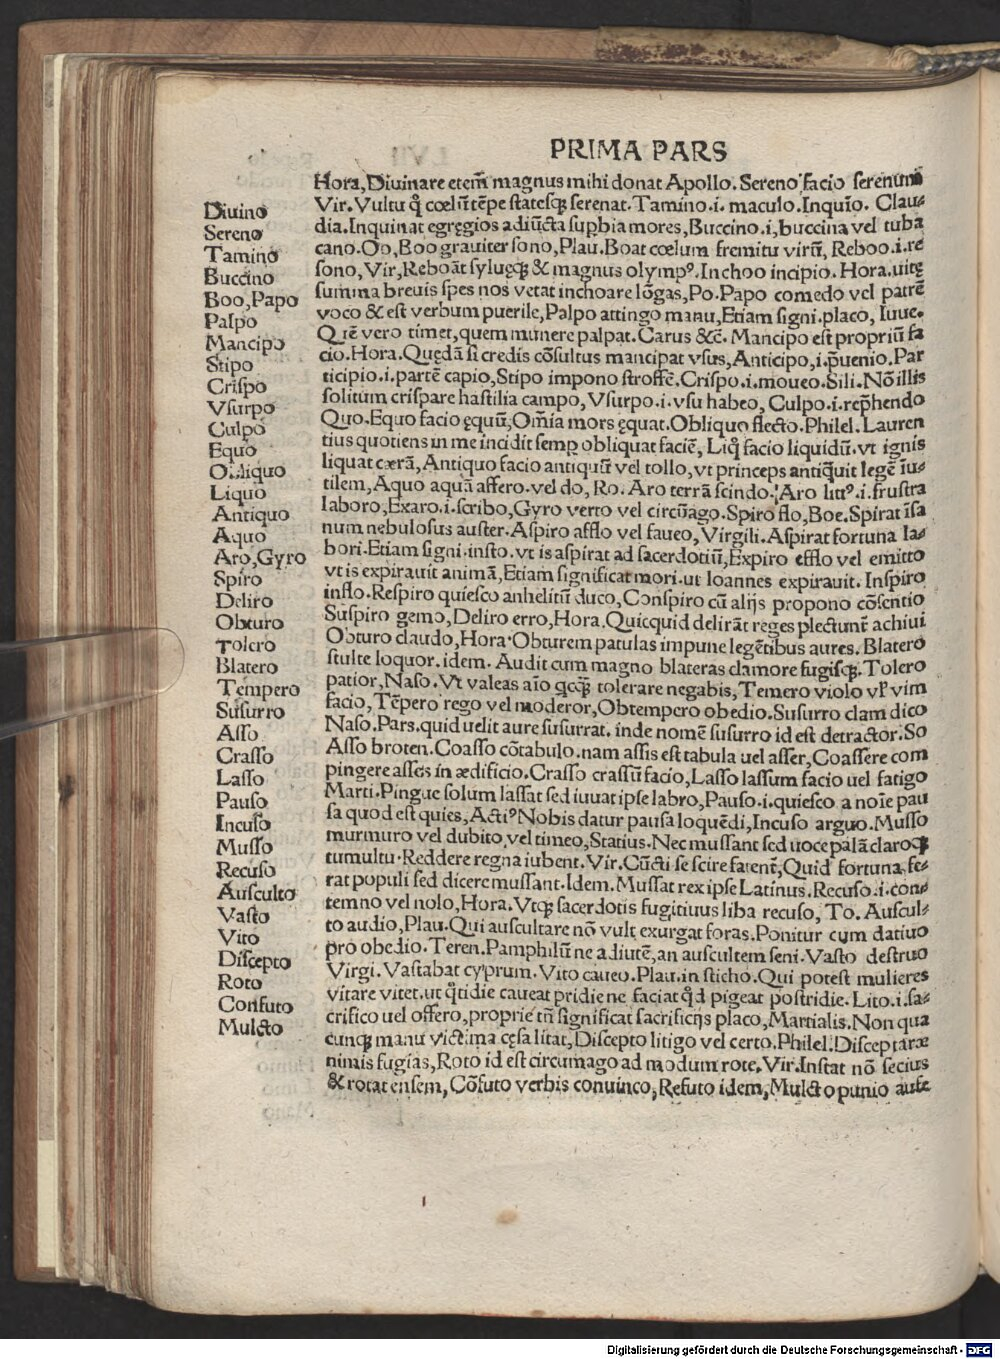 PRIMA PARS
Hora,Diuinare etem̃ magnus mihi donat Apollo.Sereno facio serenum
Vir.Vultu q̊ cœlũ tẽpestatesq; serenat.Tamino.i.maculo.Inquĩo.Clau⸗
dia.Inquinat egręgios adiũcta supbia mores,Buccino.i,buccina vel tuba
cano.Oo,Boo grauiter sono,Plau.Boat cœlum fremitu virũ,Reboo.i.re
sono,Vir,Reboãt syluęq; & magnus olympꝰ.Inchoo incipio.Hora.uitę
summa breuis spes nos vetat inchoare lõgas,Po.Papo comedo vel patrẽ
voco & est verbum puerile,Palpo attingo manu,Etiam signi.placo,Iuue.
Quẽ vero timet,quem munere palpat.Carus &c̃.Mancipo est propriũ fa
cio.Hora.Quędã si credis cõsultus mancipat vsus,Anticipo,i.p̃uenio.Par
ticipio.i.partẽ capio,Stipo impono stroffẽ.Crispo.i.moueo.Sili.Nõ illis
solitum crispare hastilia campo,Vsurpo.i.vsu habeo,Culpo.i.rep̃hendo
Quo.Equo facio ęquũ,Om̃ia mors ęquat.Obliquo flecto.Philel.Lauren
tius quotiens in me incidit semp obliquat faciẽ,Liq̊ facio liquidũ.vt ignis
liquat cærã,Antiquo facio antiquũ vel tollo,vt princeps antiq̃uit legẽ iu⸗
tilem,Aquo aquã affero.vel do,Ro.Aro terrã scindo.Aro littꝰ.i.frustra
laboro,Exaro.i.scribo,Gyro verto vel circũago.Spiro flo,Boe.Spirat ĩsa
num nebulosus auster.Aspiro afflo vel faueo,Virgili.Aspirat fortuna la⸗
bori.Etiam signi.insto.vt is aspirat ad sacerdotiũ,Expiro efflo vel emitto
vt is expirauit animã,Etiam significat mori.ut Ioannes expirauit.Inspiro
inflo.Respiro quiesco anhelitũ duco,Conspiro cũ alijs propono cõsentio
Suspiro gemo,Deliro erro,Hora.Quicquid delirãt reges plectunt̃ achiui
Obturo claudo,Hora.Obturem patulas impune legẽtibus aures.Blatero
stulte loquor.idem.Audit cum magno blateras clamore fugisq;.Tolero
patior,Naso.Vt valeas aĩo qcq̃; tolerare negabis,Temero violo vl̃ vim
facio,Tẽpero rego vel moderor,Obtempero obedio.Susurro clam dico
Naso.Pars.quid uelit aure susurrat.inde nomẽ susurro id est detractor.So
Asso broten.Coasso cõtabulo.nam assis est tabula uel asser,Coassere com
pingere asses in ædificio.Crasso crassũ facio,Lasso lassum facio uel fatigo
Marti.Pingue solum lassat sed iuuat ipse labro,Pauso.i.quiesco a noĩe pau
sa quod est quies,Actiꝰ Nobis datur pausa loquẽdi,Incuso arguo.Musso
murmuro vel dubito vel timeo,Statius.Nec mussant sed uoce palã claroq;
tumultu.Reddere regna iubent.Vir.Cũcti se scire fatent̃,Quid fortuna fe⸗
rat populi sed dicere mussant.Idem.Mussat rex ipse Latinus.Recuso.i.con⸗
temno vel nolo,Hora.Vtq; sacerdotis fugitiuus liba recuso,To.Auscul⸗
to audio,Plau.Qui auscultare nõ vult exurgat foras.Ponitur cum datiuo
pro obedio.Teren.Pamphilũ ne adiutẽ,an auscultem seni.Vasto destruo
Virgi.Vastabat cyprum.Vito caueo.Plau.in sticho.Qui potest mulieres
vitare vitet.ut q̊tidie caueat pridie ne faciat q̊d pigeat postridie.Lito.i.sa⸗
crifico uel offero,proprie tñ significat sacrificijs placo,Martialis.Non qua
cunq; manu victima cęsa litat,Discepto litigo vel certo.Philel.Disceptaræ
nimis fugias,Roto id est circumago ad modum rote.Vir.Instat nõ secius
& rotat ensem,Cõfuto verbis conuinco,Refuto idem,Mulcto punio aufe
Diuino
Sereno
Tamino
Buccino
Boo,Papo
Palpo
Mancipo
Stipo
Crispo
Vsurpo
Culpo
Equo
Obliquo
Liquo
Antiquo
Aquo
Aro,Gyro
Spiro
Deliro
Obturo
Tolero
Blatero
Tempero
Susurro
Asso
Crasso
Lasso
Pauso
Incuso
Musso
Recuso
Ausculto
Vasto
Vito
Discepto
Roto
Confuto
Mulcto
Digitalisierung gefördert durch die Deutsche Forschungsgemeinschaft - DFG